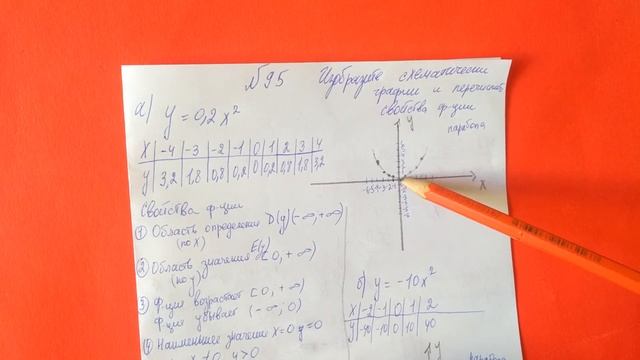 №95 Изобразите схематически
графики и перечислите
свойства ф-ции
а) y = 0,2x²
парабола
y
x
X | -4 | -3 | -2 | -1 | 0 | 1 | 2 | 3 | 4
y | 3,2 | 1,8 | 0,8 | 0,2 | 0 | 0,2 | 0,8 | 1,8 | 3,2
Свойства ф-ции
① Область определения D(y) (-∞, +∞)
(по x)
② Область значения E(y) [0, +∞)
(по y)
③ ф-ция возрастает [0, +∞)
ф-ция убывает (-∞; 0)
④ Наименьшее значение x=0 y=0
x ≠ 0, y > 0
б) y = -10x²
X | -2 | -1 | 0 | 1 | 2
y | -40 | -10 | 0 | 10 | 40
y
парабола